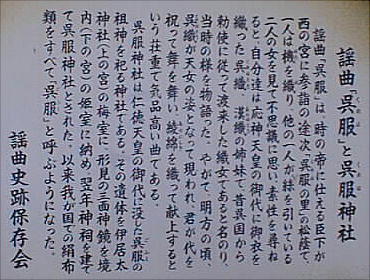 謡曲「呉服」と呉服神社
謡曲「呉服」は、時の帝に仕える臣下が
西の宮に参詣の途次「呉服の里」の松蔭で、
一人は機を織り、他の一人が糸を引いている
二人の女を見て不思議に思い、素性を尋ね
ると、自分達は応神天皇の御代に御衣を
織った呉織、漢織の姉妹で、昔異国から
勅使に従って渡来した織女であると名のり、
当時の様を物語った。やがて、明方の頃、
呉織が天女の姿となって現われ、君が代を
祝って舞を舞い、綾錦を織って献上すると
いう荘重で気品高い曲である。
呉服神社は仁徳天皇の御代に没した呉服の
祖神を祀る神社である。その遺体を伊居太
神社(上の宮)の梅室に、形見の三面神鏡を境
内(下の宮)の姫室に納め、翌年神祠を建て
て呉服神社とされた。以来我が国での絹布
類をすべて「呉服」と呼ぶようになった。
謡曲史跡保存会